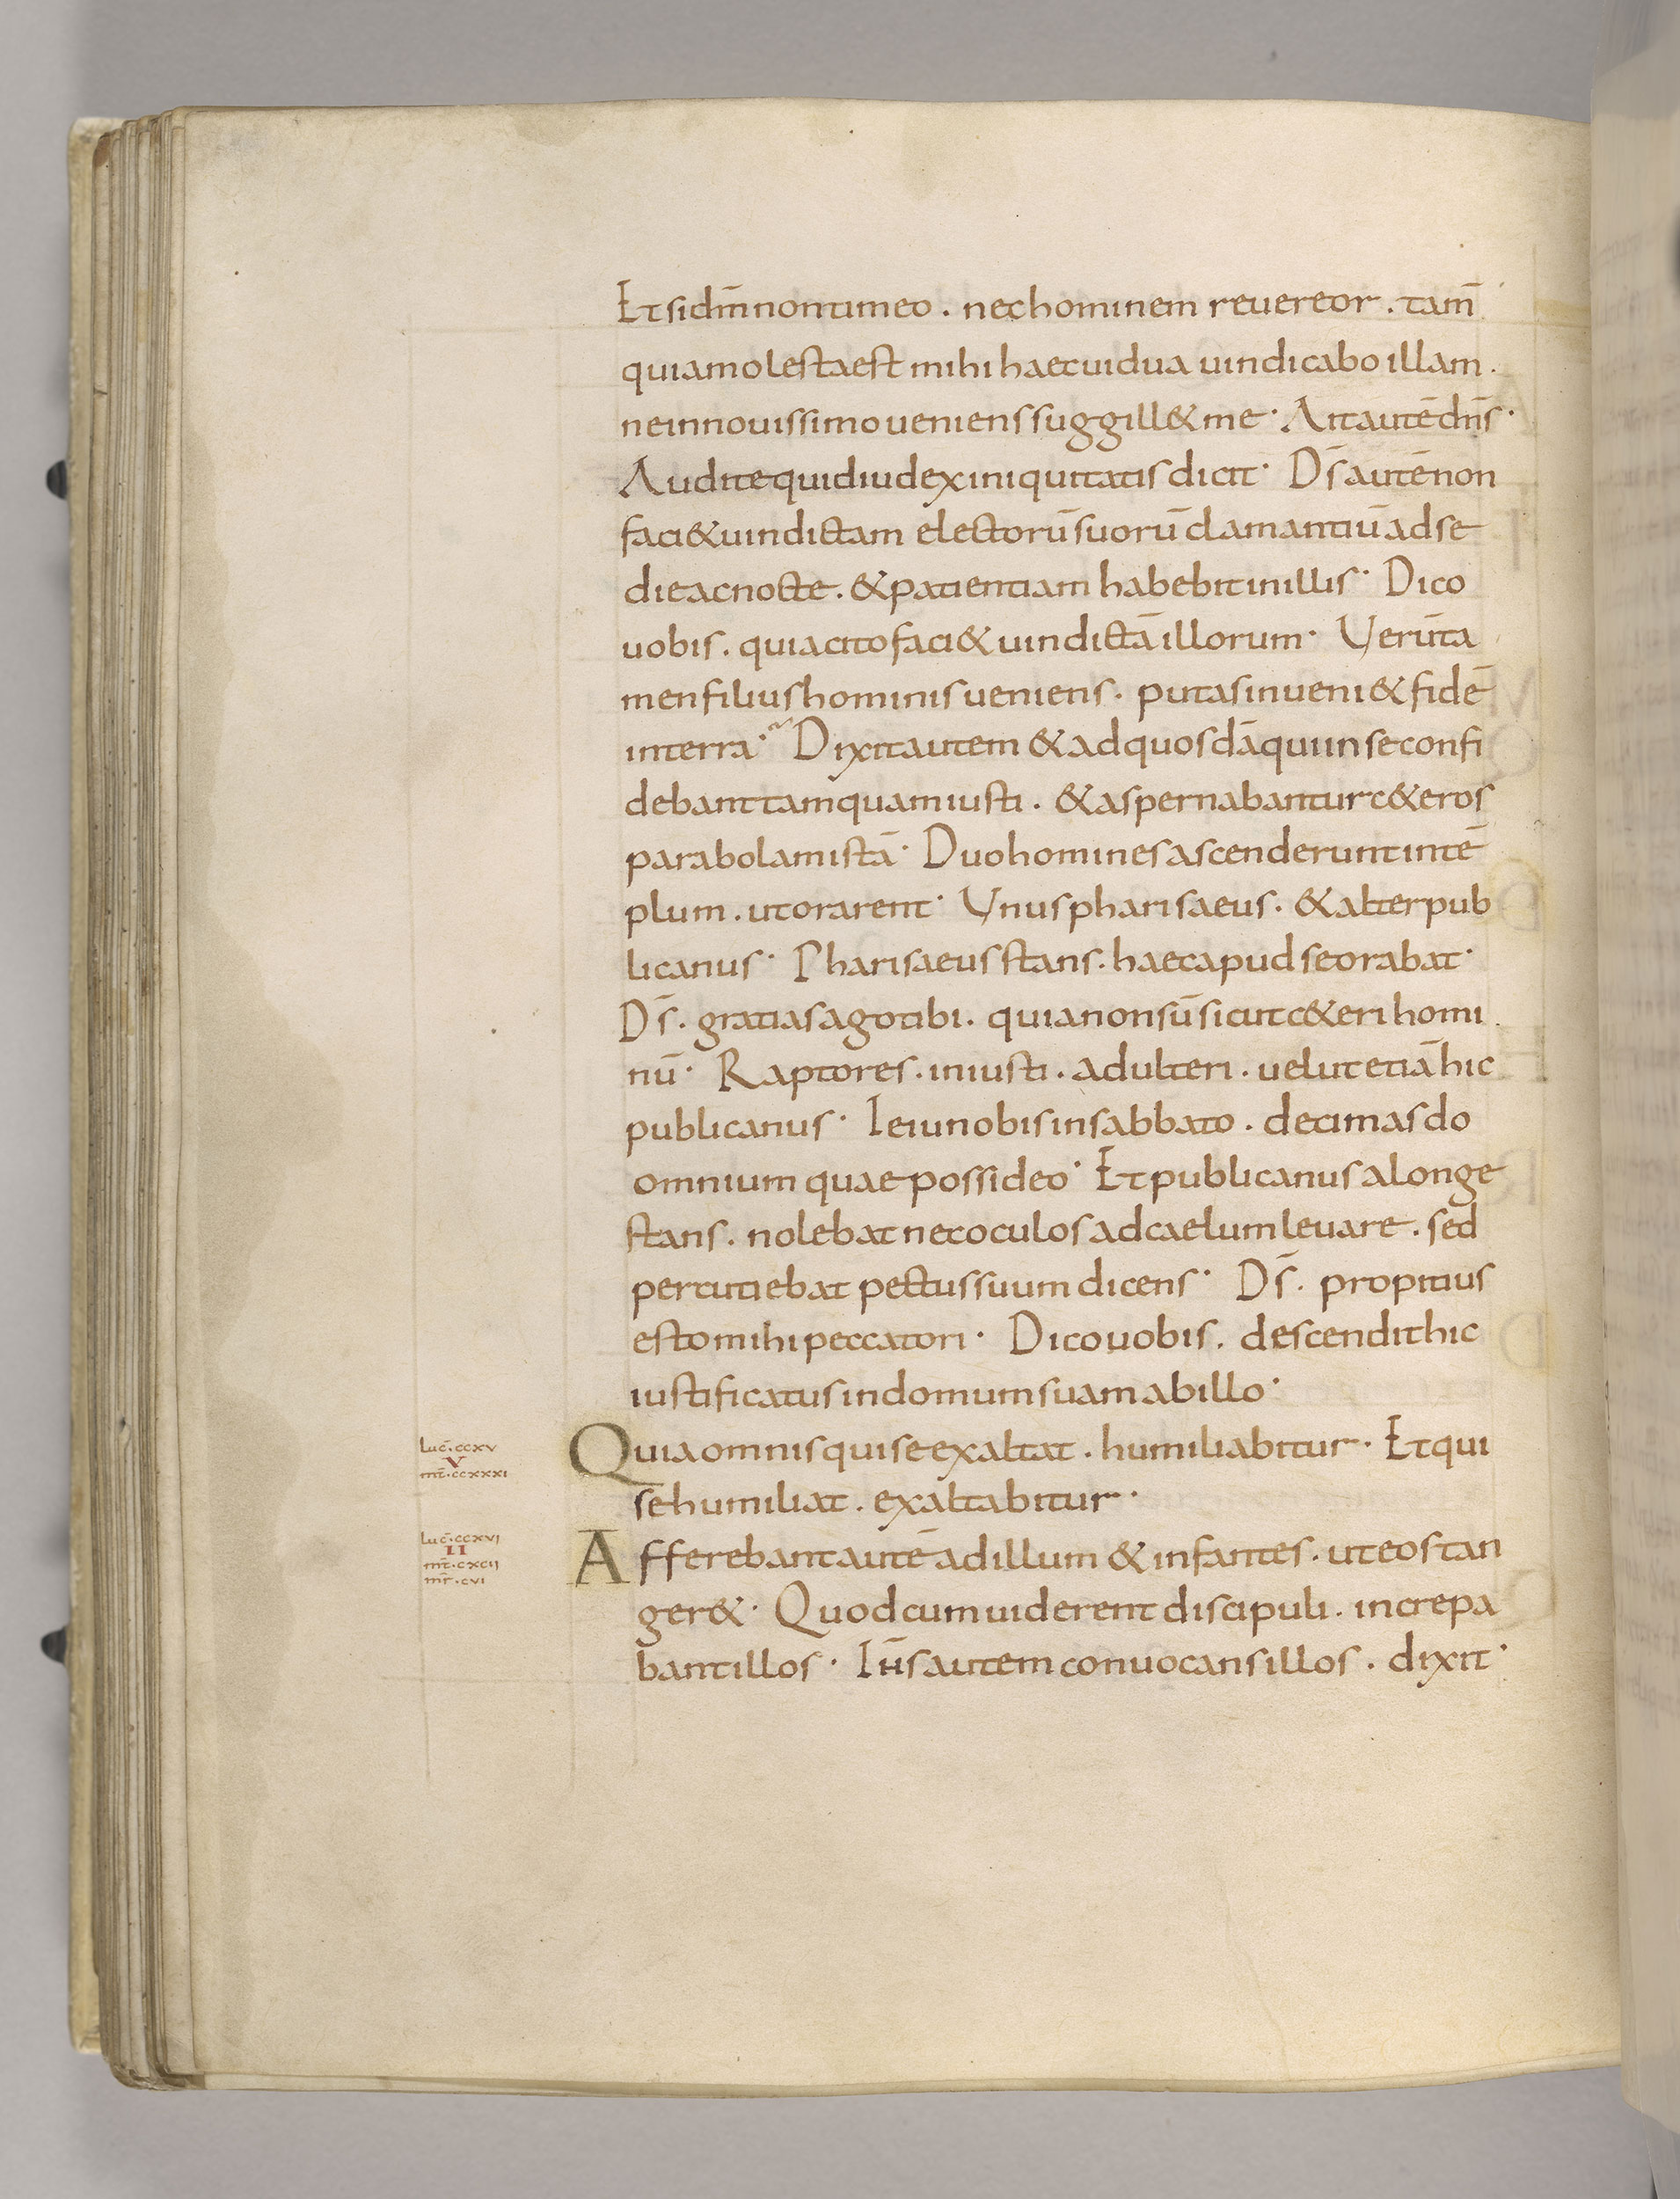 Et si dm̄ non timeo . nec hominem reuereor . tam̄
quia molesta est mihi haec uidua uindicabo illam .
ne in nouissimo ueniens suggill& me · Ait autē dn̄s ·
Audite quid iudex iniquitatis dicit · Ds̄ autē non
faci& uindictam electorū suorū clamantiū ad se
die ac nocte . & patientiam habebit in illis · Dico
uobis . quia cito faci& uindictā illorum · Verūta
men filius hominis ueniens . putas inueni& fidē
in terra · Dixit autem & ad quosdā qui in se confi
debant tamquam iusti . & aspernabantur c&eros
parabolam istā · Duo homines ascenderunt in tē
plum . ut orarent · Vnus pharisaeus . & alter pub
licanus · Pharisaeus stans . haec apud se orabat ·
Ds̄ . gratias ago tibi . quia non sū sicut c&eri homi
nū · Raptores . iniusti . adulteri . uelut etiā hic
publicanus · Ieiuno bis in sabbato . decimas do
omnium quae possideo · Et publicanus a longe
stans . nolebat nec oculos ad caelum leuare . sed
percutiebat pectus suum dicens · Ds̄ . propitius
esto mihi peccatori · Dico uobis . descendit hic
iustificatus in domum suam ab illo ·
luc̄ . ccxv
v
mt̄ . ccxxxi
Quia omnis qui se exaltat . humiliabitur · Et qui
se humiliat . exaltabitur ·
luc̄ . ccxvi
II
mt̄ . cxcii
mr̄ . cvi
Afferebant autē ad illum & infantes . ut eos tan
ger& · Quod cum uiderent discipuli . increpa
bant illos · Ih̄s autem conuocans illos . dixit ·